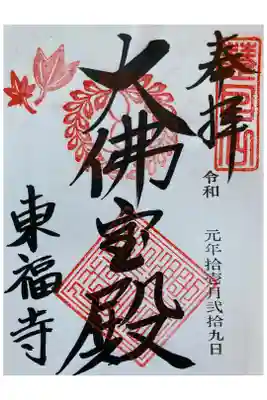 奉拝
令和 元年拾壱月弐拾九日
大佛宝殿
東福寺